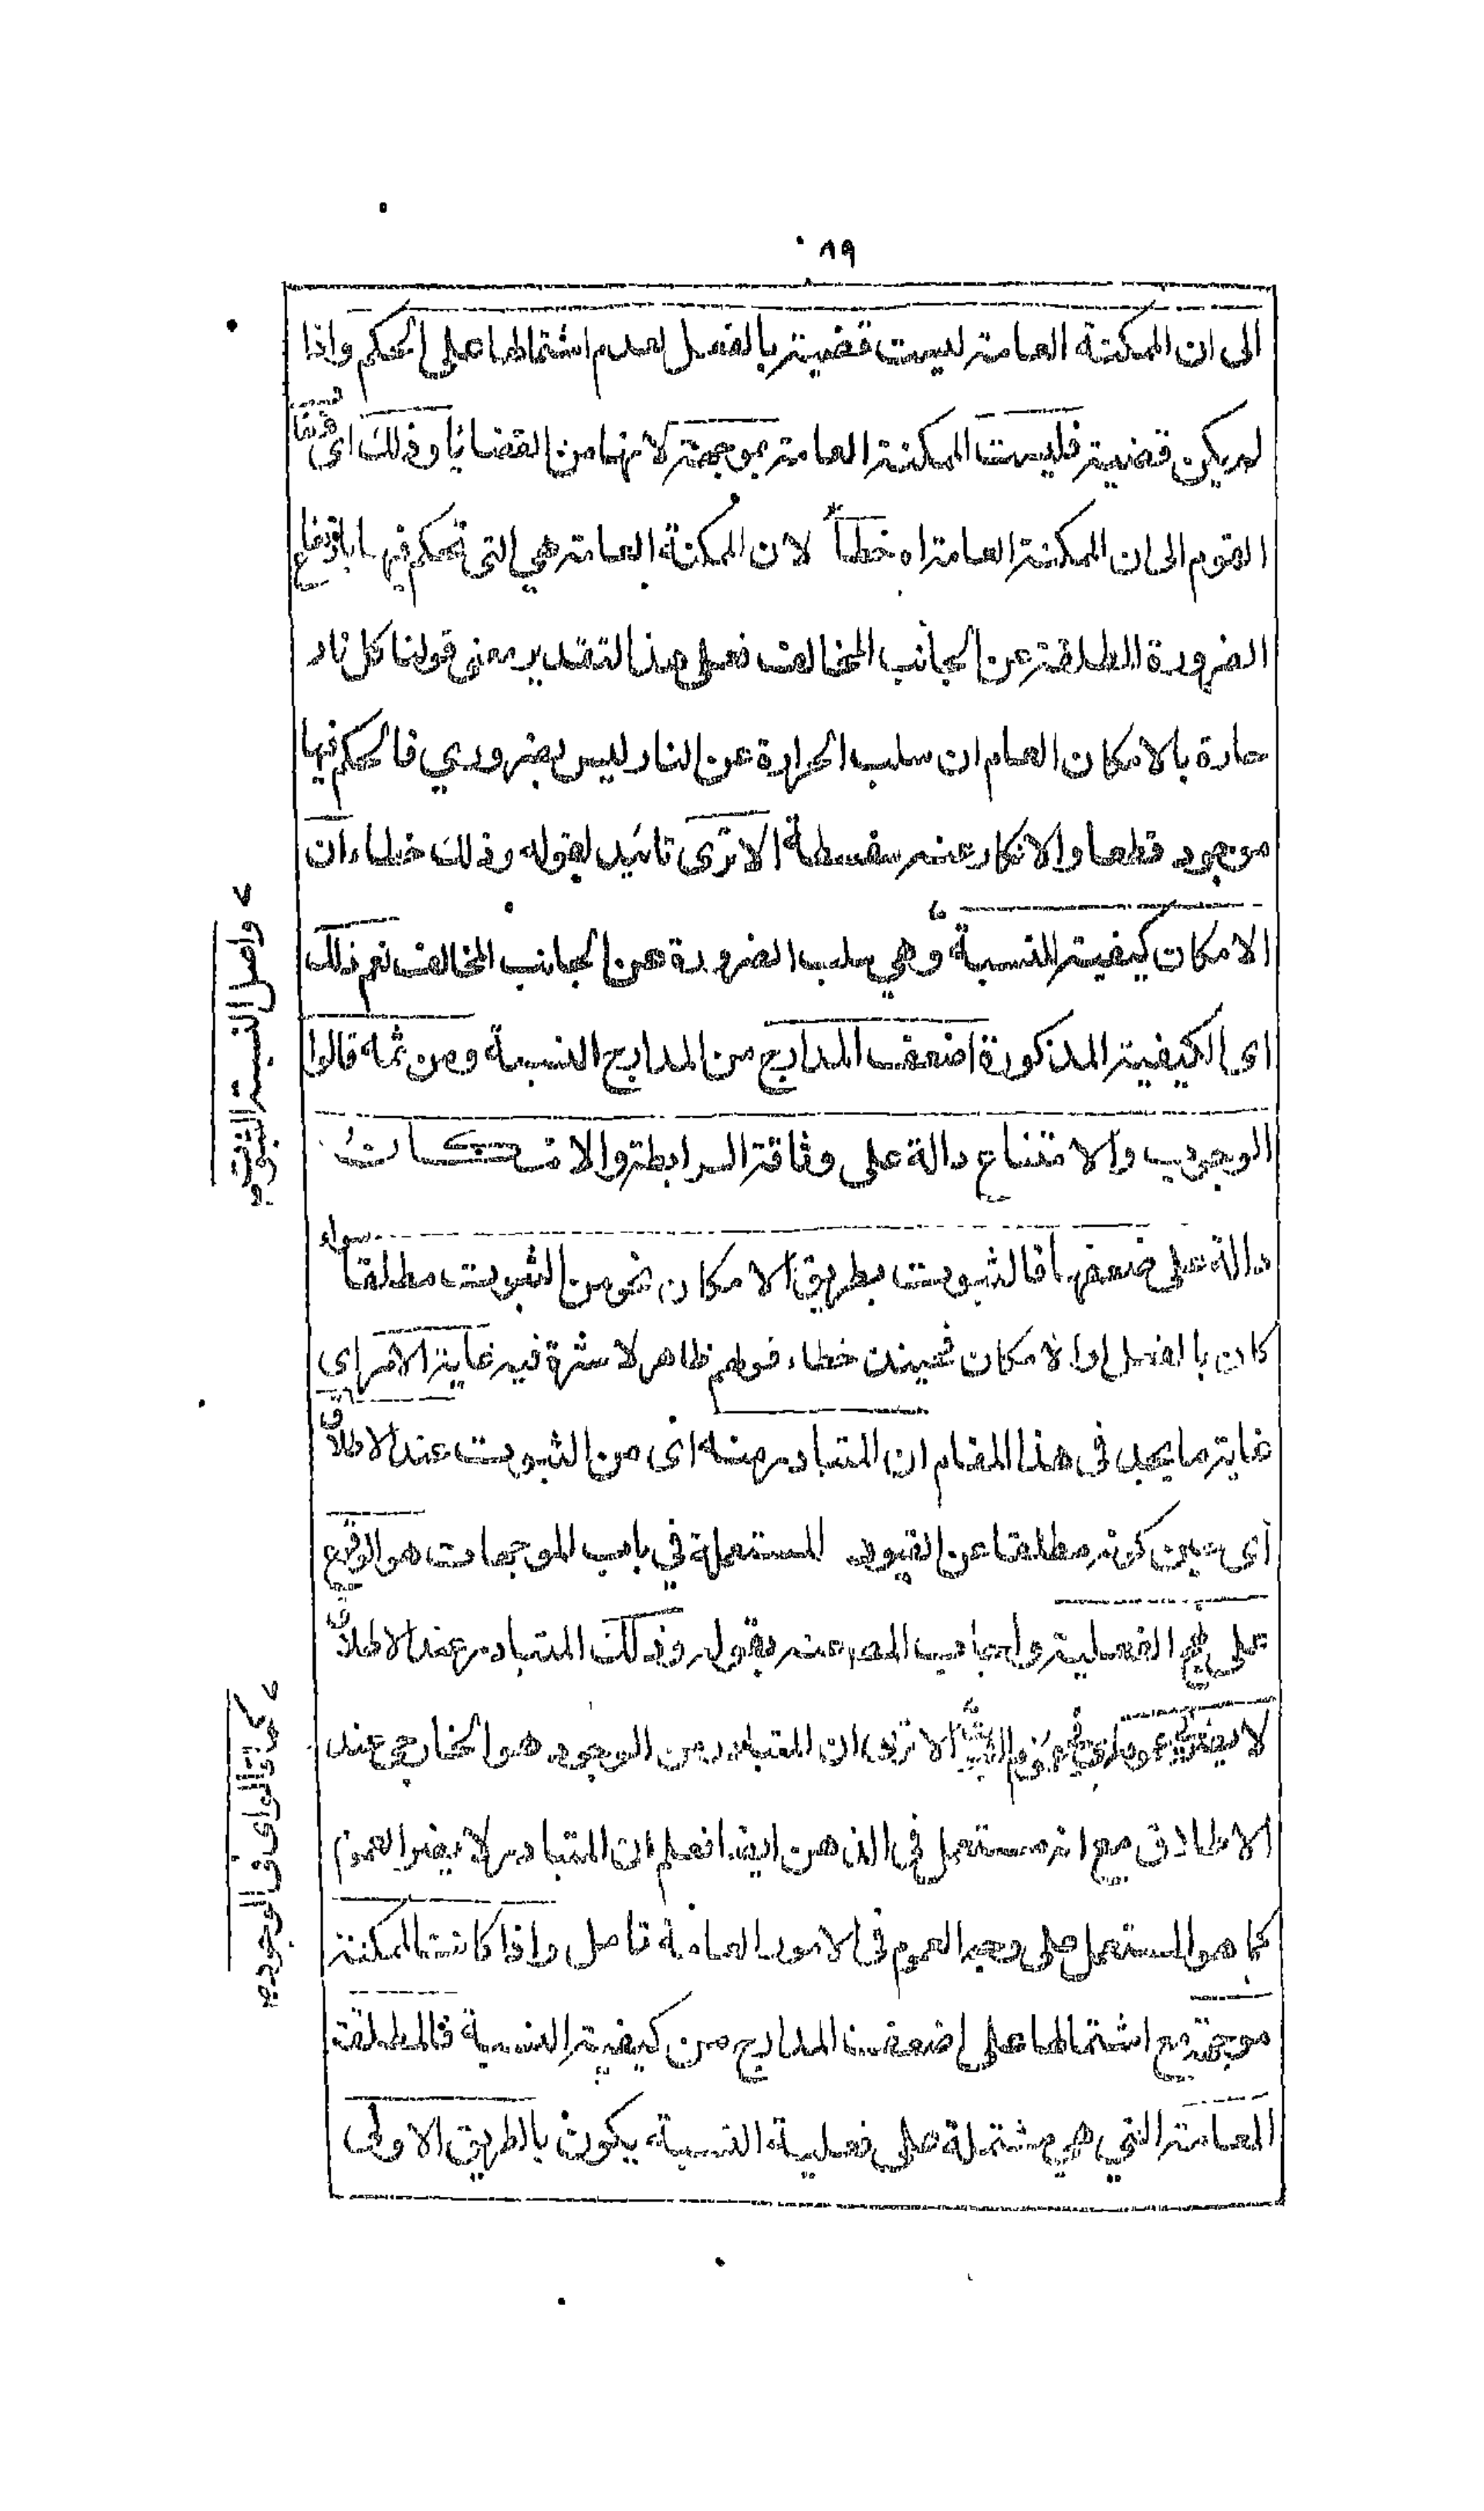 ٨٩
الى ان الممكنة العامة ليست قضية بالفعل لعدم اشتمالها على الحكم واذا
لم يكن قضية فليست الممكنة العامة بموجهة لانها من القضايا وذلك اى
القوم الى ان الممكنة العامة اه خطأ لان الممكنة العامة هي التى تحكم فيها بارتفاع
الضرورة المطلقة عن الجانب المخالف فعلى هذا لتقدير معنى قولنا كل نار
حارة بالامكان العام ان سلب الحرارة عن النار ليس بضروري فالحكم فيها
موجود قطعا والانكار عنه سفسطة الا ترى تائيد لقوله وذلك خطاء ان
الامكان كيفية النسبة وهي سلب الضرورة عن الجانب المخالف نعم ذلك
اى الكيفية المذكورة اضعف المدارج من المدارج النسبة ومن ثمه قالوا
الوجوب والامتناع دالة على وثاقة الرابطة والامكان
دالة على ضعفها فالثبوت بطريق الامكان نحو من الثبوت مطلقا سواء
كان بالفعل او الامكان فحينئذ خطاء قولهم ظاهر لا سترة فيه غاية الامر اي
غاية ما يجب فى هذا المقام ان المتبادر منه اى من الثبوت عند الاطلاق
اى حين كونه مطلقا عن القيود المستعملة في باب الموجهات هو الوقوع
على نهج الفعلية واجاب المص عنه بقوله وذلك المتبادر عند الاطلاق
لا يضر الا ترى ان المتبادر من الوجود هو الخارجي عند
الاطلاق مع انه مستعمل فى الذهن ايضا فعلم ان المتبادر لا يضر العموم
كما هو المستعمل على وجه العموم فى الامور العامة تامل واذا كانت الممكنة
موجهة مع اشتمالها على اضعف المدارج من كيفية النسبة فالمطلقة
العامة التي هي مشتملة على فعلية النسبة يكون بالطريق الاولى
واصل النسبة الثبوتية
كما قالوا فى الوجود